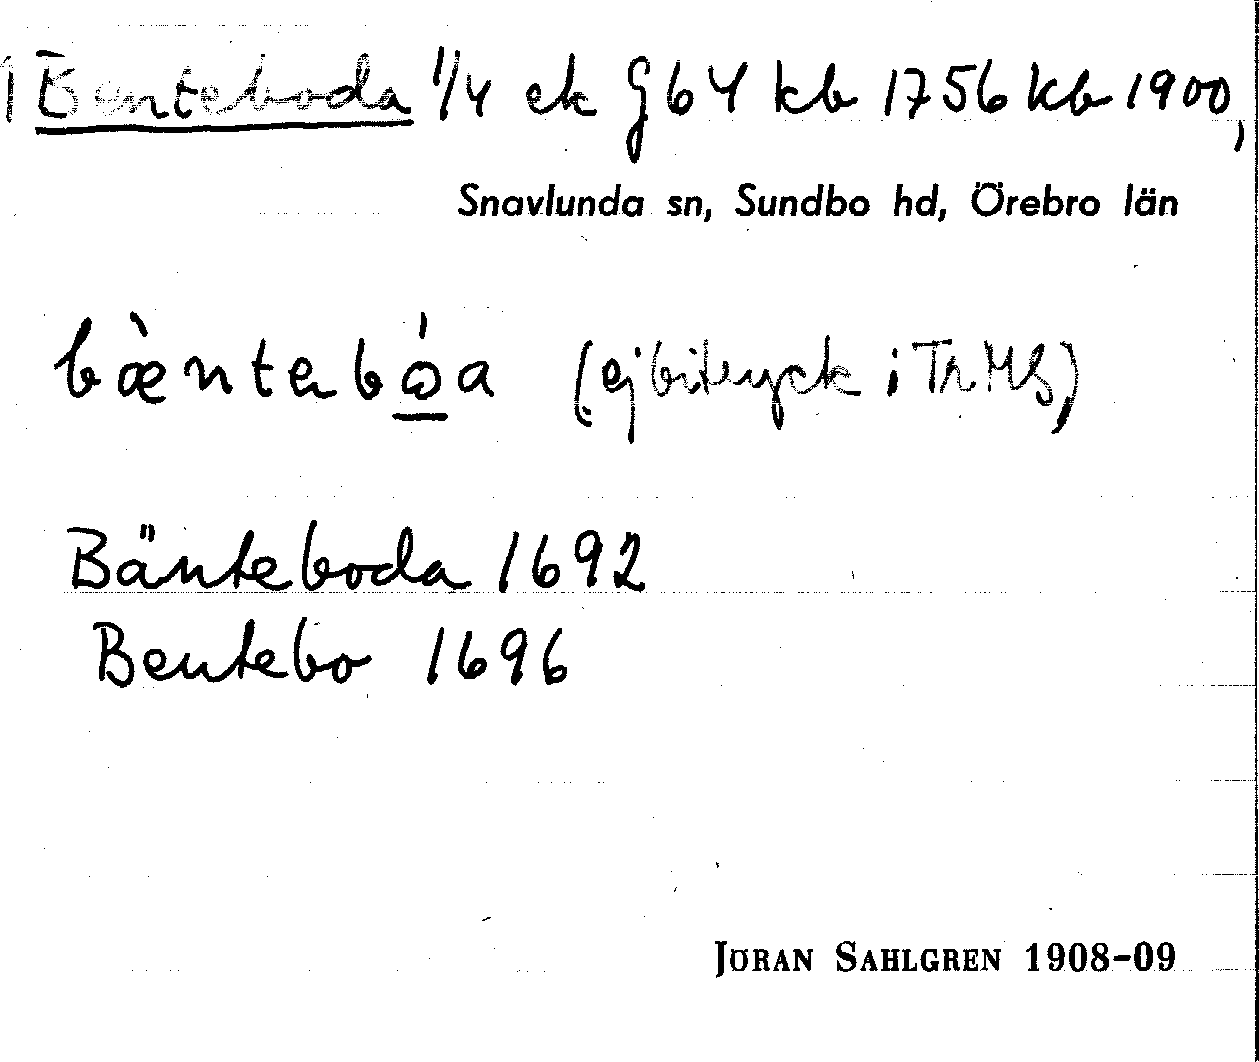 1 Benteboda 1/4 ek J64 kb 1756 kb 1900,
Snavlunda sn, Sundbo hd, Örebro län
bæ̀ntebώ̲a (ej bitryck i Tr MS)
Bänteboda 1692
Bentebo 1696
JÖRAN SAHLGREN 1908-09